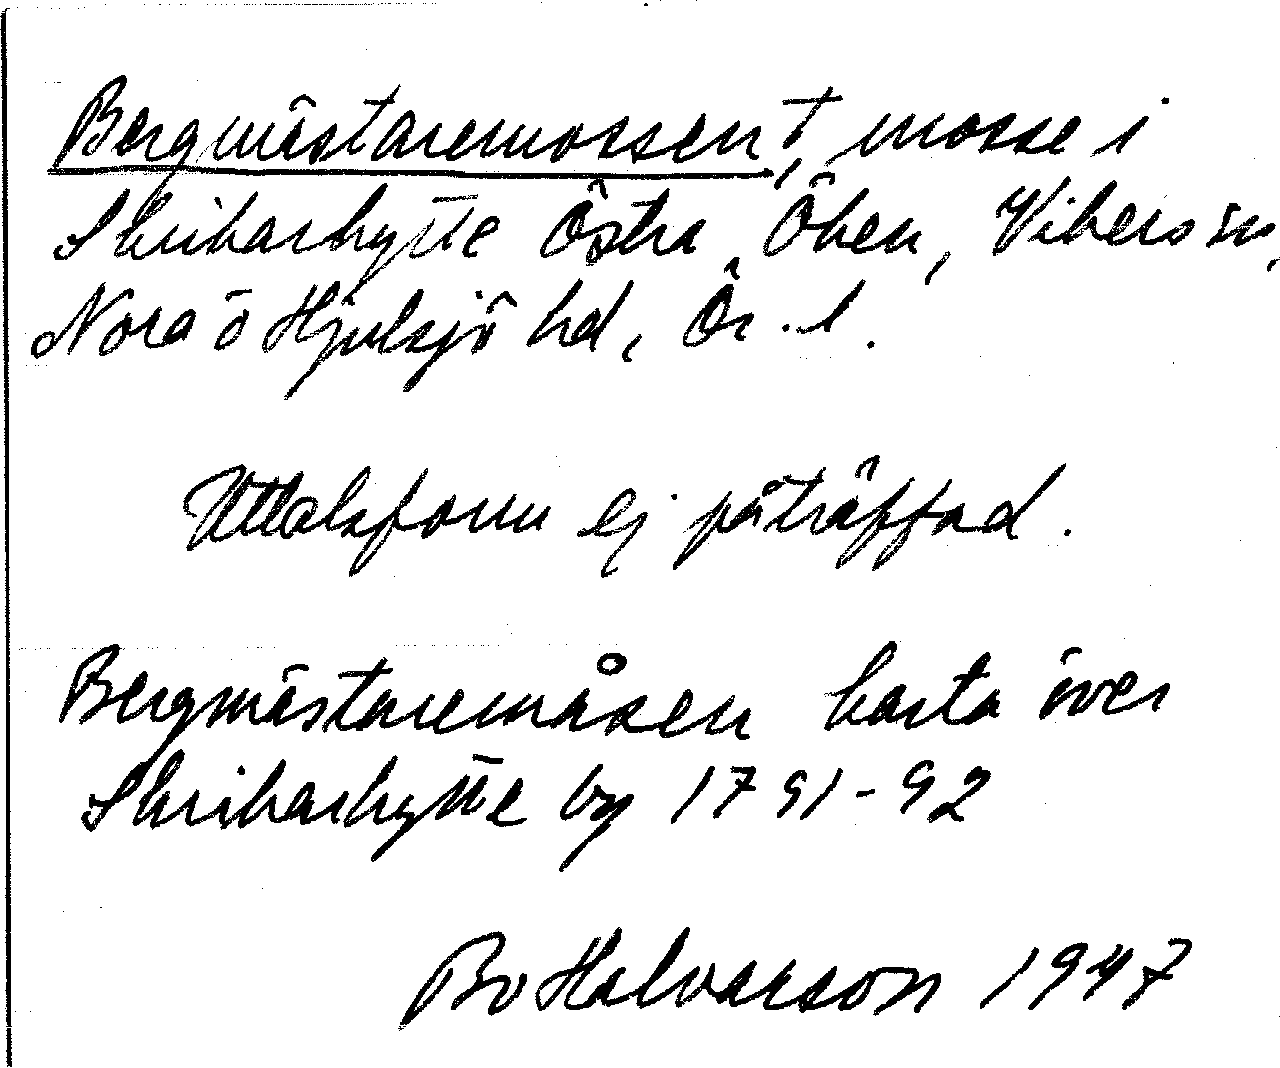 Bergmästaremossen†, mosse i
Skrikarhytte Östra Öken, Vikers sn,
Nora o Hjulsjö hd, Ör. l.
Uttalsform ej påträffad.
Bergmästaremåsen karta över
Skrikarhytte by 1791-92
Bo Halvarson 1947